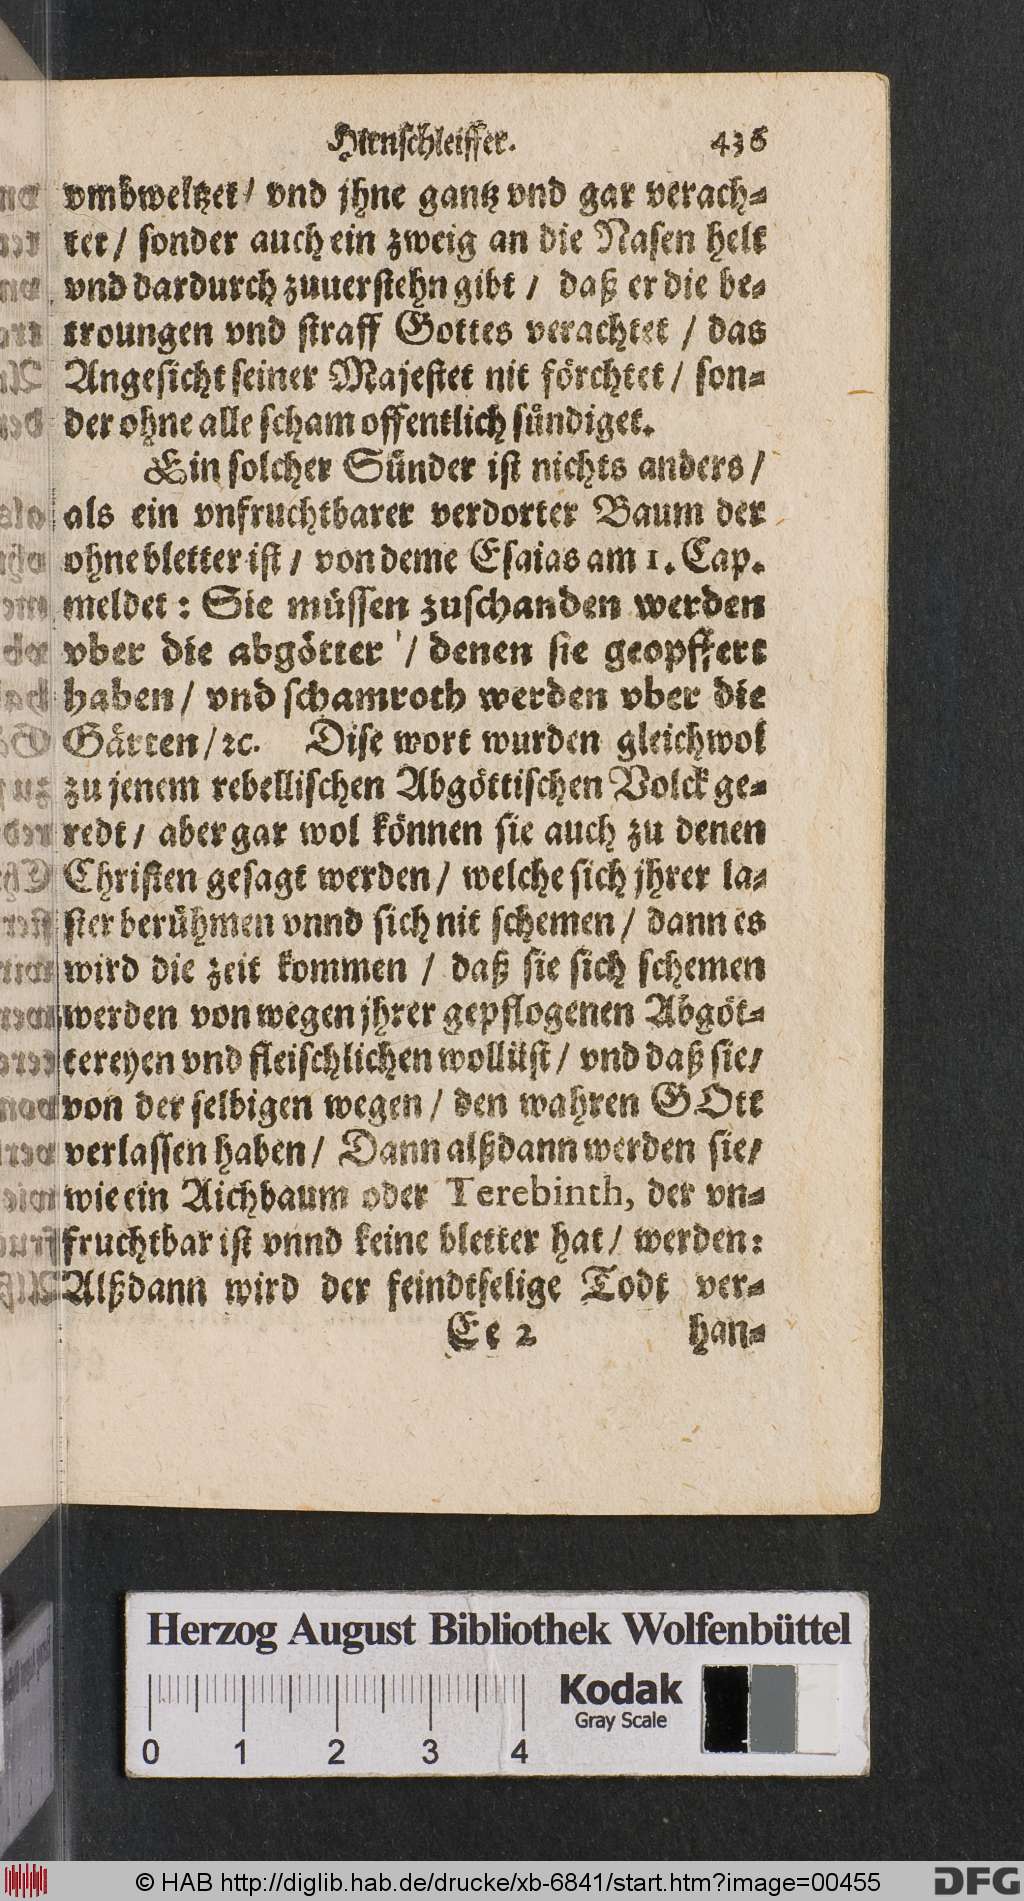 Hirnschleiffer. 436
vmbweltzet / vnd jhne gantz vnd gar verach-
tet / sonder auch ein zweig an die Nasen helt
vnd dardurch zuuerstehn gibt / daß er die be-
troungen vnd straff Gottes verachtet / das
Angesicht seiner Majestet nit förchtet / son-
der ohne alle scham offentlich sündiget.
Ein solcher Sünder ist nichts anders /
als ein vnfruchtbarer verdorter Baum der
ohne bletter ist / von deme Esaias am 1. Cap.
meldet : Sie müssen zuschanden werden
vber die abgötter / denen sie geopffert
haben / vnd schamroth werden vber die
Gärten / ꝛc. Dise wort wurden gleichwol
zu jenem rebellischen Abgöttischen Volck ge-
redt / aber gar wol können sie auch zu denen
Christen gesagt werden / welche sich jhrer la-
ster berühmen vnnd sich nit schemen / dann es
wird die zeit kommen / daß sie sich schemen
werden von wegen jhrer gepflogenen Abgöt-
tereyen vnd fleischlichen wollüst / vnd daß sie /
von der selbigen wegen / den wahren GOtt
verlassen haben / Dann alßdann werden sie /
wie ein Aichbaum oder Terebinth, der vn-
fruchtbar ist vnnd keine bletter hat / werden :
Alßdann wird der feindtselige Todt ver-
Ee 2 han-
Herzog August Bibliothek Wolfenbüttel
Kodak
Gray Scale
0 1 2 3 4
© HAB http://diglib.hab.de/drucke/xb-6841/start.htm?image=00455
DFG